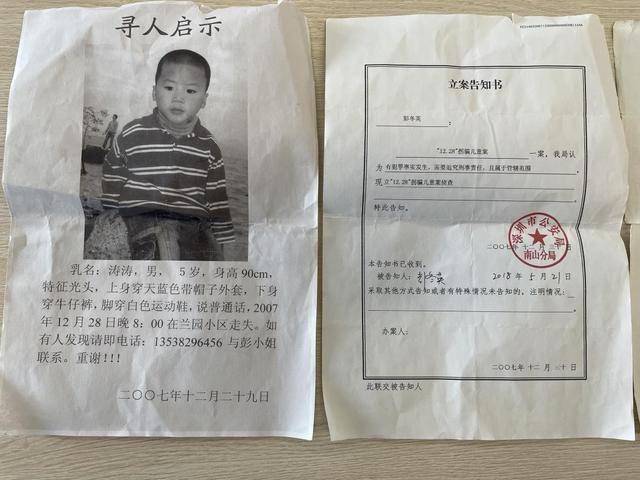 寻人启示
乳名：涛涛，男， 5岁，身高90cm，
特征光头，上身穿天蓝色带帽子外套，下身
穿牛仔裤，脚穿白色运动鞋，说普通话，2007
年12月28日晚8：00在兰园小区走失。如
有人发现请即电话：13538296456与彭小姐
联系。重谢!!!
二〇〇七年十二月二十九日
立案告知书
彭冬英 ：
“12.28”拐骗儿童案 一案，我局认
为 有犯罪事实发生，需要追究刑事责任，且属于管辖范围
现 立“12.28”拐骗儿童案侦查
特此告知。
深圳市公安局
南山分局
二〇〇七年十二月三十日
本告知书已收到。
被告知人：彭冬英 2018年5月21日
采取其他方式告知或者有特殊情况未告知的，注明情况：
办案人：
二〇〇七年 十二 月 三十 日
此联交被告知人